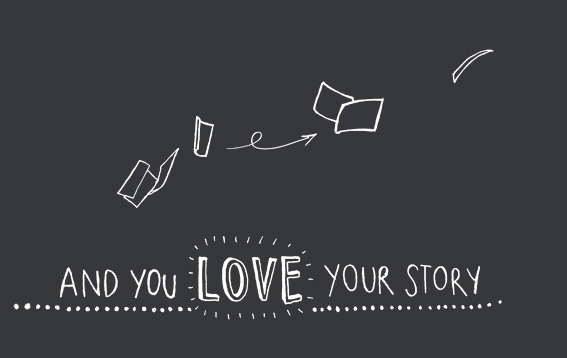 AND YOU LOVE YOUR STORY